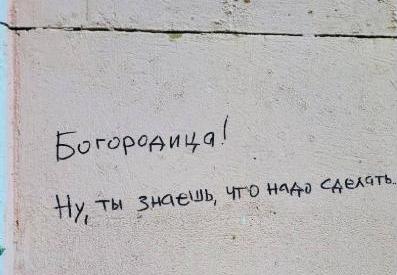 Богородица!
Ну, ты знаешь, что надо сделать..